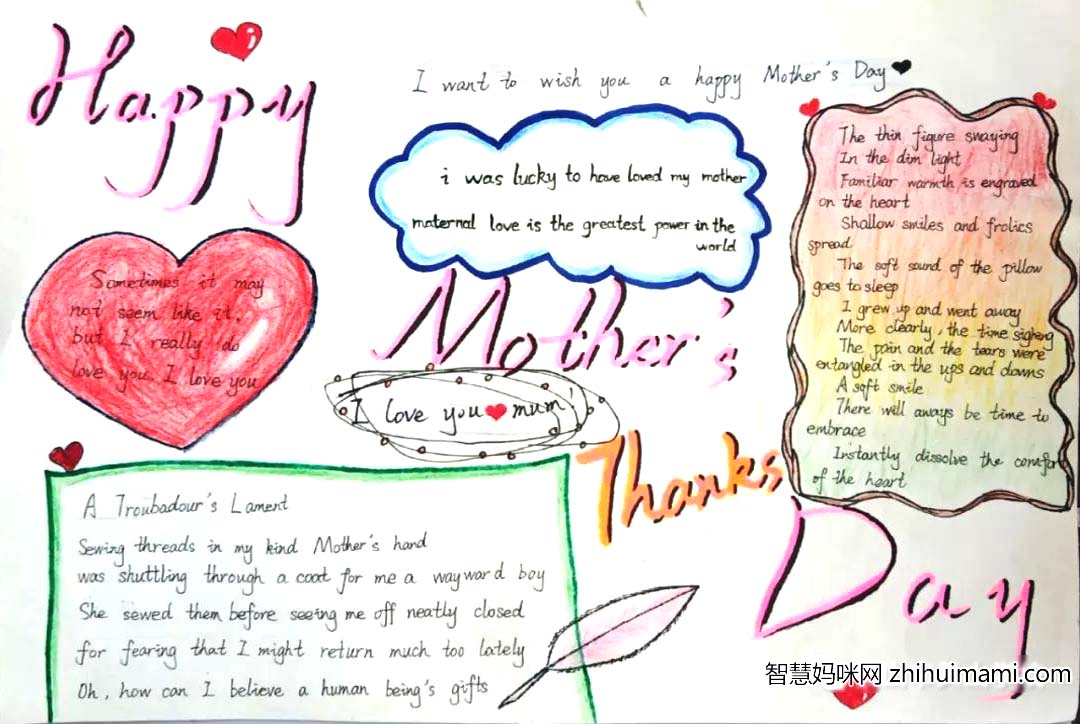 Happy
I want to wish you a happy Mother's Day
i was lucky to have loved my mother
maternal love is the greatest power in the
world
The thin figure swaying
In the dim light
Familiar warmth is engraved
on the heart
Shallow smiles and frolics
spread
The soft sound of the pillow
goes to sleep
I grew up and went away
More clearly, the time sighing
The pain and the tears were
entangled in the ups and downs
A soft smile
There will aways be time to
embrace
Instantly dissolve the comfort
of the heart
Sometimes it may
not seem like it,
but I really do
love you. I love you
Mother's
I love you mum
Thanks
Day
A Troubadour's Lament
Sewing threads in my kind Mother's hand
was shuttling through a coat for me a wayward boy
She sewed them before seeing me off neatly closed
for fearing that I might return much too lately
Oh, how can I believe a human being's gifts
智慧妈咪网 zhihuimami.com